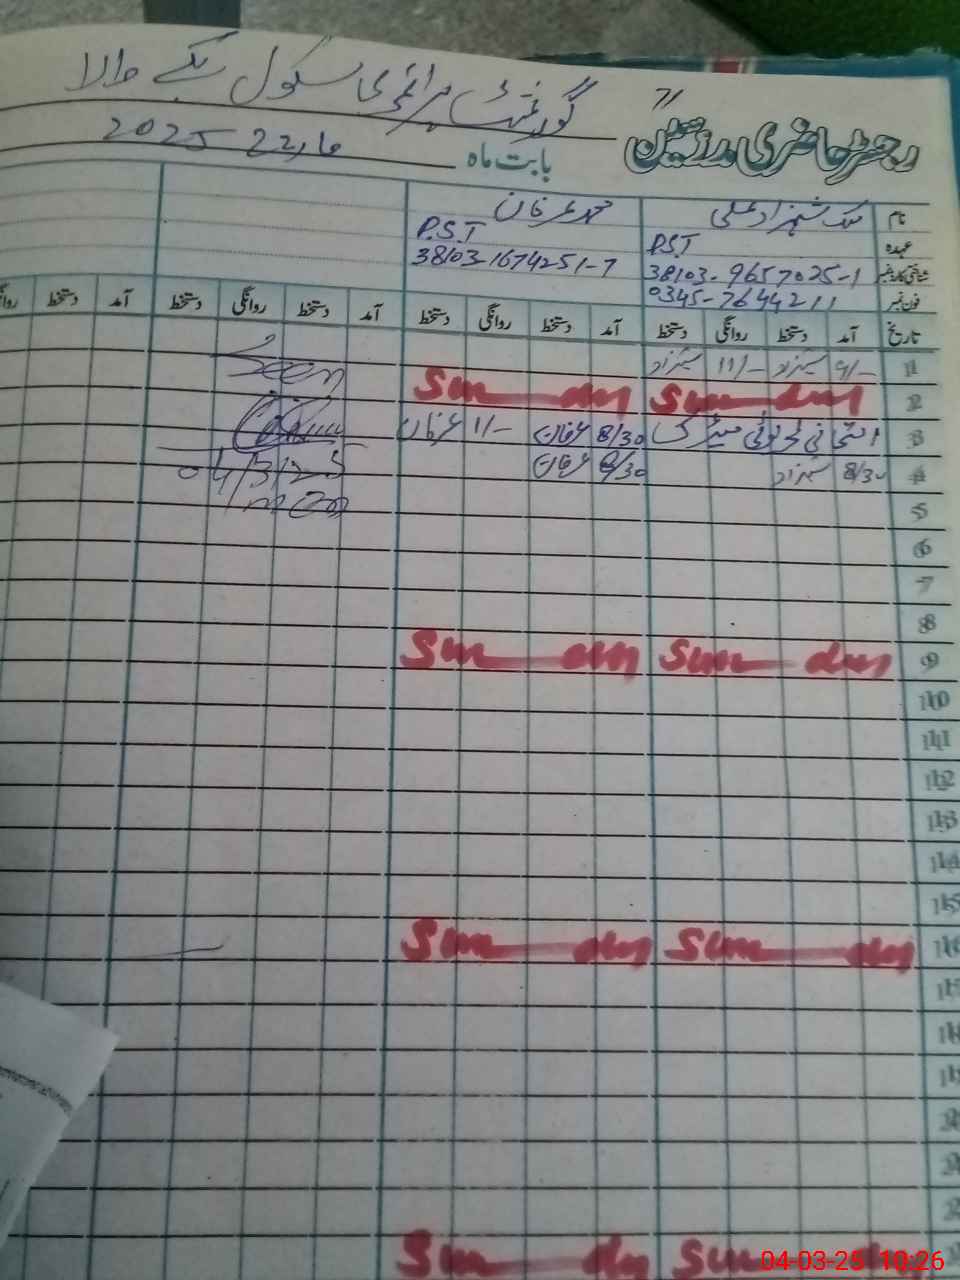 گورنمنٹ پرائمری سکول بکے والا
رجسٹر حاضری مدرسین
بابت ماہ مارچ 2025
نام ملک شہزاد علی محمد عرفان
عہدہ P.S.T P.S.T
شناختی کارڈ نمبر 38103-9657025-1 38103-1674251-7
فون نمبر 0345-7644211
تاریخ آمد دستخط روانگی دستخط آمد دستخط روانگی دستخط آمد دستخط روانگی دستخط آمد دستخط روانگی
1 9/- شہزاد 11/- شہزاد Seen
2 Sun day Sun day
3 امتحانی ڈیوٹی میٹرک 8/30 عرفان 11/- عرفان
4 8/30 شہزاد 8/30 عرفان 04/3/25
5
6
7
8
9 Sun day Sun day
10
11
12
13
14
15
16 Sun day Sun day
17
18
19
20
21
22
Sun day Sun day
04-03-25 10:26